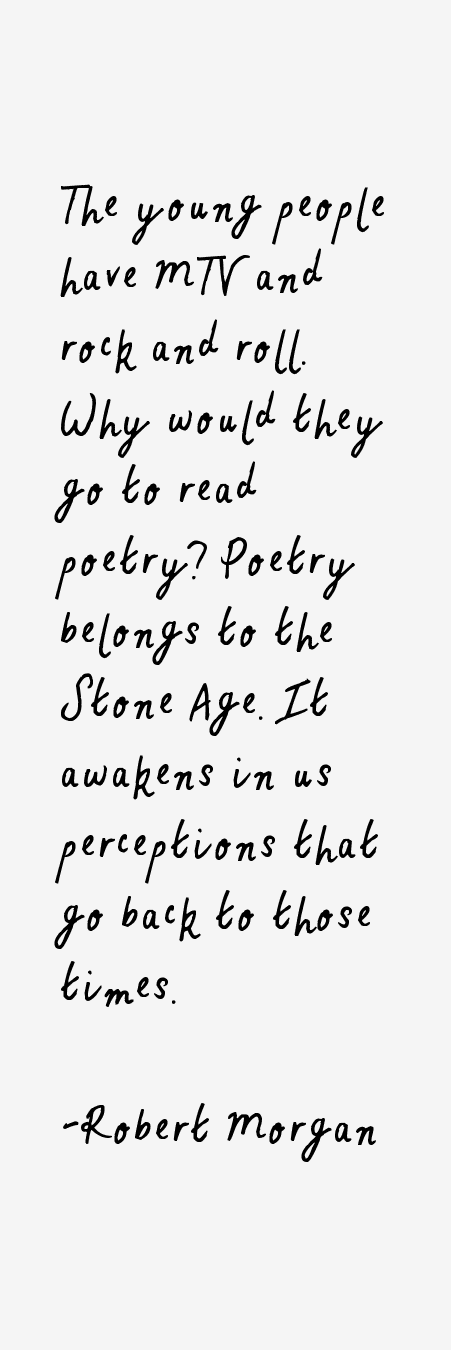 The young people
have MTV and
rock and roll.
Why would they
go to read
poetry? Poetry
belongs to the
Stone Age. It
awakens in us
perceptions that
go back to those
times.
-Robert Morgan